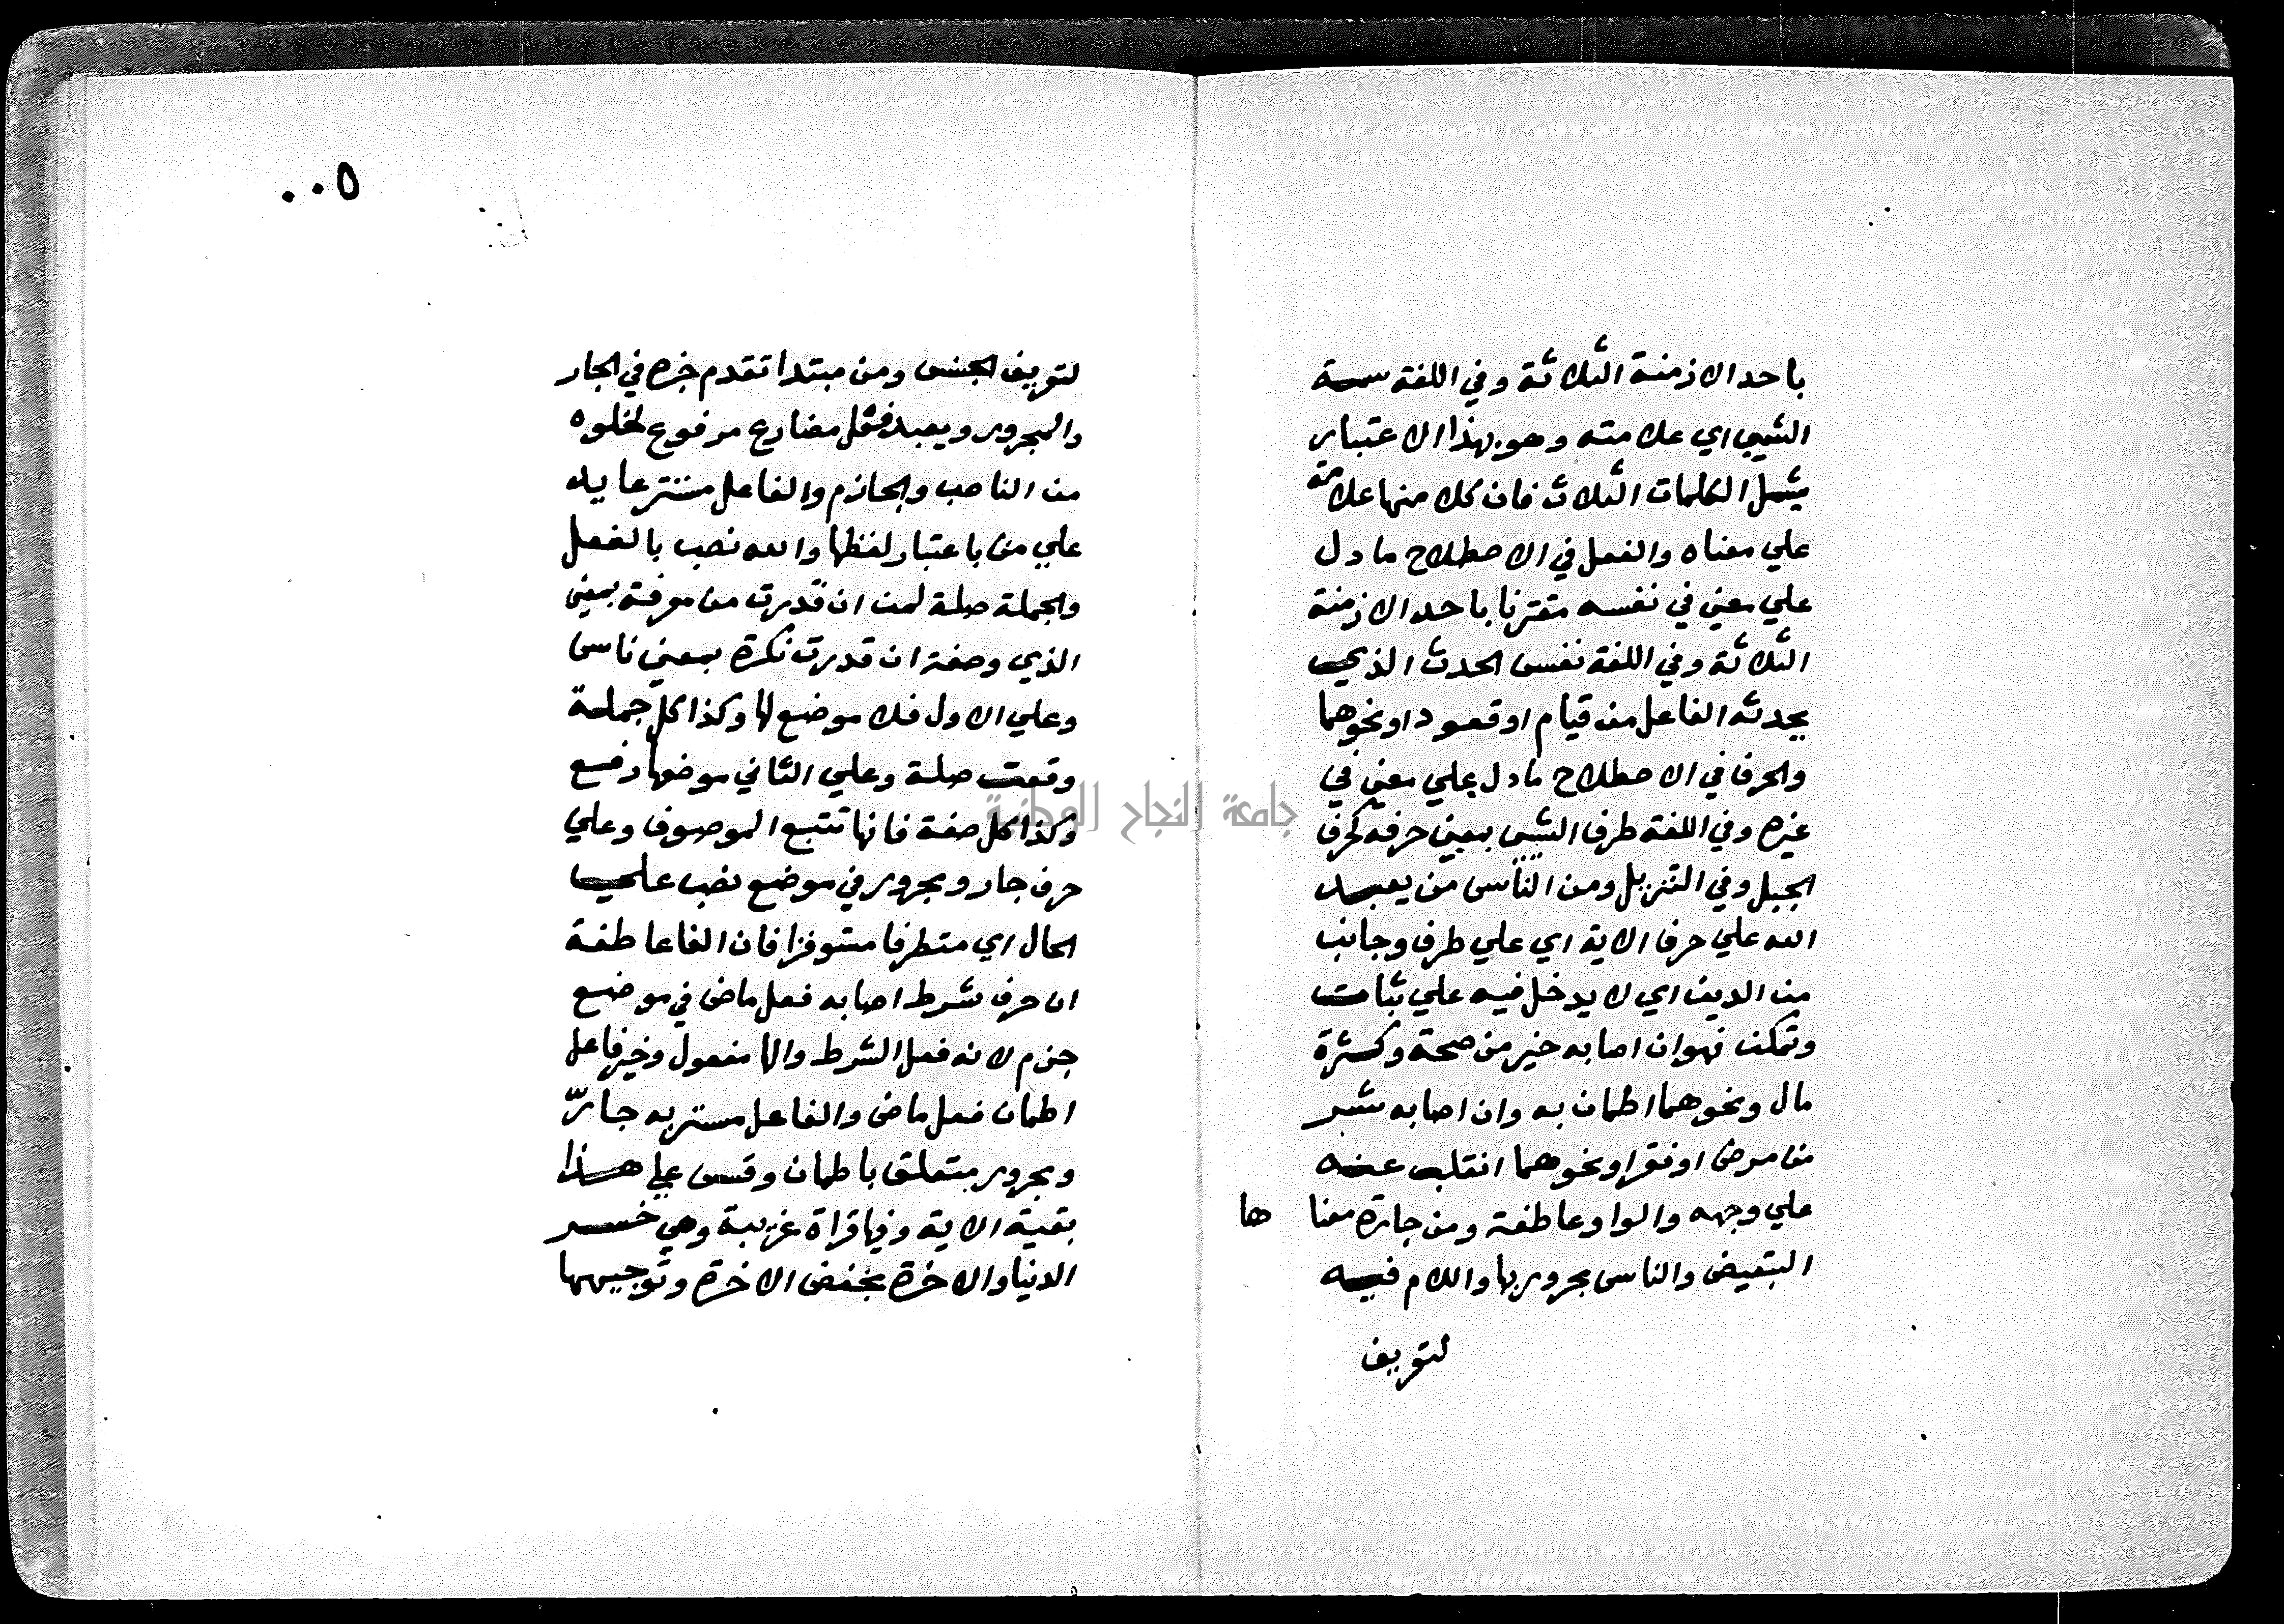 باحد الازمنة الثلاثة وفي اللغة سمة
الشيي اي علامته وهو بهذا الاعتبار
يشمل الكلمات الثلاث فان كلا منها علامة
علي معناه والفعل في الاصطلاح ما دل
علي معني في نفسه مقترنا باحد الازمنة
الثلاثة وفي اللغة نفس الحدث الذي
يحدثه الفاعل من قيام او قعود او نحوهما
والحرف في الاصطلاح ما دل علي معني في
غيره وفي اللغة طرف الشيي بمعني حرفه كحرف
الجبل وفي التنزيل ومن الناس من يعبد
الله علي حرف الاية اي علي طرف وجانب
من الدين اي لا يدخل فيه علي ثبات
وتمكن فهو ان اصابه خير من صحة وكثرة
مال ونحوهما اطمان به وان اصابه شر
من مرض او فقر او نحوهما انقلب عنه
علي وجهه والواو عاطفة ومن جارة معنا ها
التبعيض والناس مجرور بها واللام فيه
لتعريف
٠٠٥
لتعريف الجنس ومن مبتدا تقدم خبره في الجار
والمجرور ويعبد فعل مضارع مرفوع لخلوه
من الناصب والجازم والفاعل مستتر عايد
علي من باعتبار لفظها والله نصب بالفعل
والجملة صلة لمن ان قدرت من معرفة بمعني
الذي وصفة ان قدرت نكرة بمعني ناس
وعلي الاول فلا موضع لها وكذا كل جملة
وقعت صلة وعلي الثاني موضعها رفع
وكذا كل صفة فانها تتبع الموصوف وعلي
حرف جار ومجرور في موضع نصب علي
الحال اي متطرفا مستوفزا فان الفا عاطفة
ان حرف شرط اصابه فعل ماض في موضع
جزم لانه فعل الشرط والها مفعول وخير فاعل
اطمان فعل ماض والفاعل مستتر به جارّ
ومجرور متعلق باطمان وقس علي هذا
بقية الاية وفيها قراة غريبة وهي خسر
الدنيا والاخرة بخفض الاخرة وتوجيهها
جامعة النجاح الوطنية